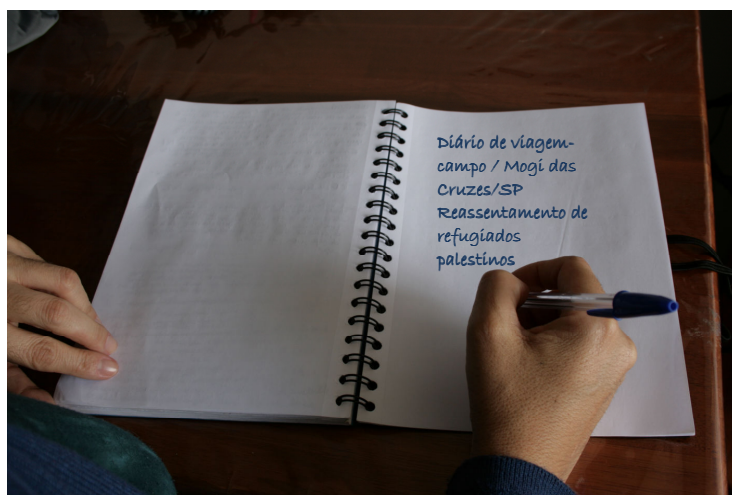 Diário de viagem-
campo / Mogi das
Cruzes/SP
Reassentamento de
refugiados
palestinos